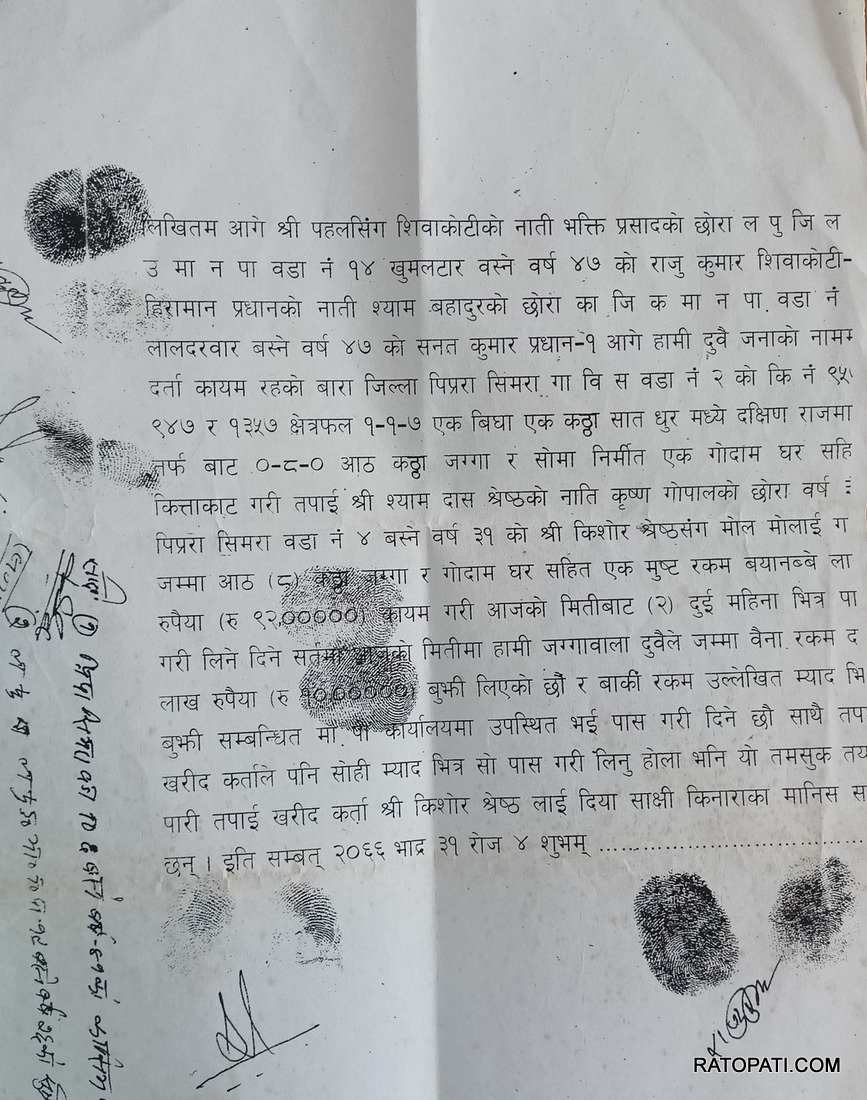 लिखितम आगे श्री पहलसिंग शिवाकोटीको नाती भक्ति प्रसादको छोरा ल पु जि ल
उ मा न पा वडा नं १४ खुमलटार वस्ने वर्ष ४७ को राजु कुमार शिवाकोटी-
हिरामान प्रधानको नाती श्याम बहादुरको छोरा का जि क मा न पा वडा नं
लालदरवार बस्ने वर्ष ४७ को सनत कुमार प्रधान-१ आगे हामी दुवै जनाको नाम
दर्ता कायम रहको बारा जिल्ला पिप्ररा सिमरा गा वि स वडा नं २ को कि नं
९४७ र १३५७ क्षेत्रफल १-१-७ एक बिघा एक कठ्ठा सात धुर मध्ये दक्षिण राजमा
तर्फ बाट ०-८-० आठ कठ्ठा जग्गा र सोमा निर्मीत एक गोदाम घर सहि
कित्ताकाट गरी तपाई श्री श्याम दास श्रेष्ठको नाति कृष्ण गोपालको छोरा वर्ष
पिप्ररा सिमरा वडा नं ४ बस्ने वर्ष ३१ को श्री किशोर श्रेष्ठसंग मोल मोलाई ग
जम्मा आठ (८) कठ्ठा जग्गा र गोदाम घर सहित एक मुष्ट रकम बयानब्बे ला
रुपैया (रु ९२,०००००) कायम गरी आजको मितीबाट (२) दुई महिना भित्र पा
गरी लिने दिने सर्तमा आजको मितीमा हामी जग्गावाला दुवैले जम्मा वैना रकम द
लाख रुपैया (रु १०,०००००) बुझी लिएको छौ र बाकी रकम उल्लेखित म्याद भि
बुझी सम्बन्धित मा पो कार्यालयमा उपस्थित भई पास गरी दिने छौ साथै तपा
खरीद कर्ताले पनि सोही म्याद भित्र सो पास गरी लिनु होला भनि यो तमसुक तय
पारी तपाई खरीद कर्ता श्री किशोर श्रेष्ठ लाई दिया साक्षी किनाराका मानिस स
छन् । इति सम्बत् २०६६ भाद्र ३१ रोज ४ शुभम् ......................................
RATOPATI.COM